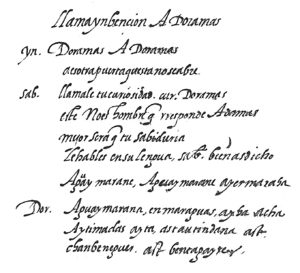 Llama ynbencion A Doramas
yn. Doramas A Doramas
aesotrapuertaquestanoseabre.
sab. llamale tu curiosidad. cur. Doramas
este Noel hombre q rresponde Adamas
mejor sera q tu sabiduria
Lehables ensu lengua, sab. bien as dicho
Apuay marane, Apuay marane ayer maraha
Dor. Apuay marana, en maraguas, ayba
Aytimadas ayta, ast autindana ast
chanbeneguer. ast beneapayre.